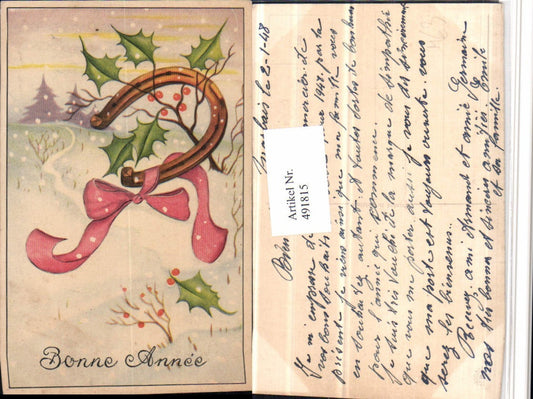 Bonne Année
Artikel Nr.
491815
le 2-1-48
Je m'empresse de
vos bons souhaits 1947. par la
présente je viens ainsi que ma famille vous
en souhaitez autant et toutes sortes de bonheur
pour l'année qui commence.
Je suis très touché de la marque de simpathie
que vous me portez aussi je vous dis
que ma porte est toujours ouverte vous
serez les bienvenus.
Recevez ami Armand et amie Germaine
nos très bonnes et sincères amitiés Emile
et sa famille.